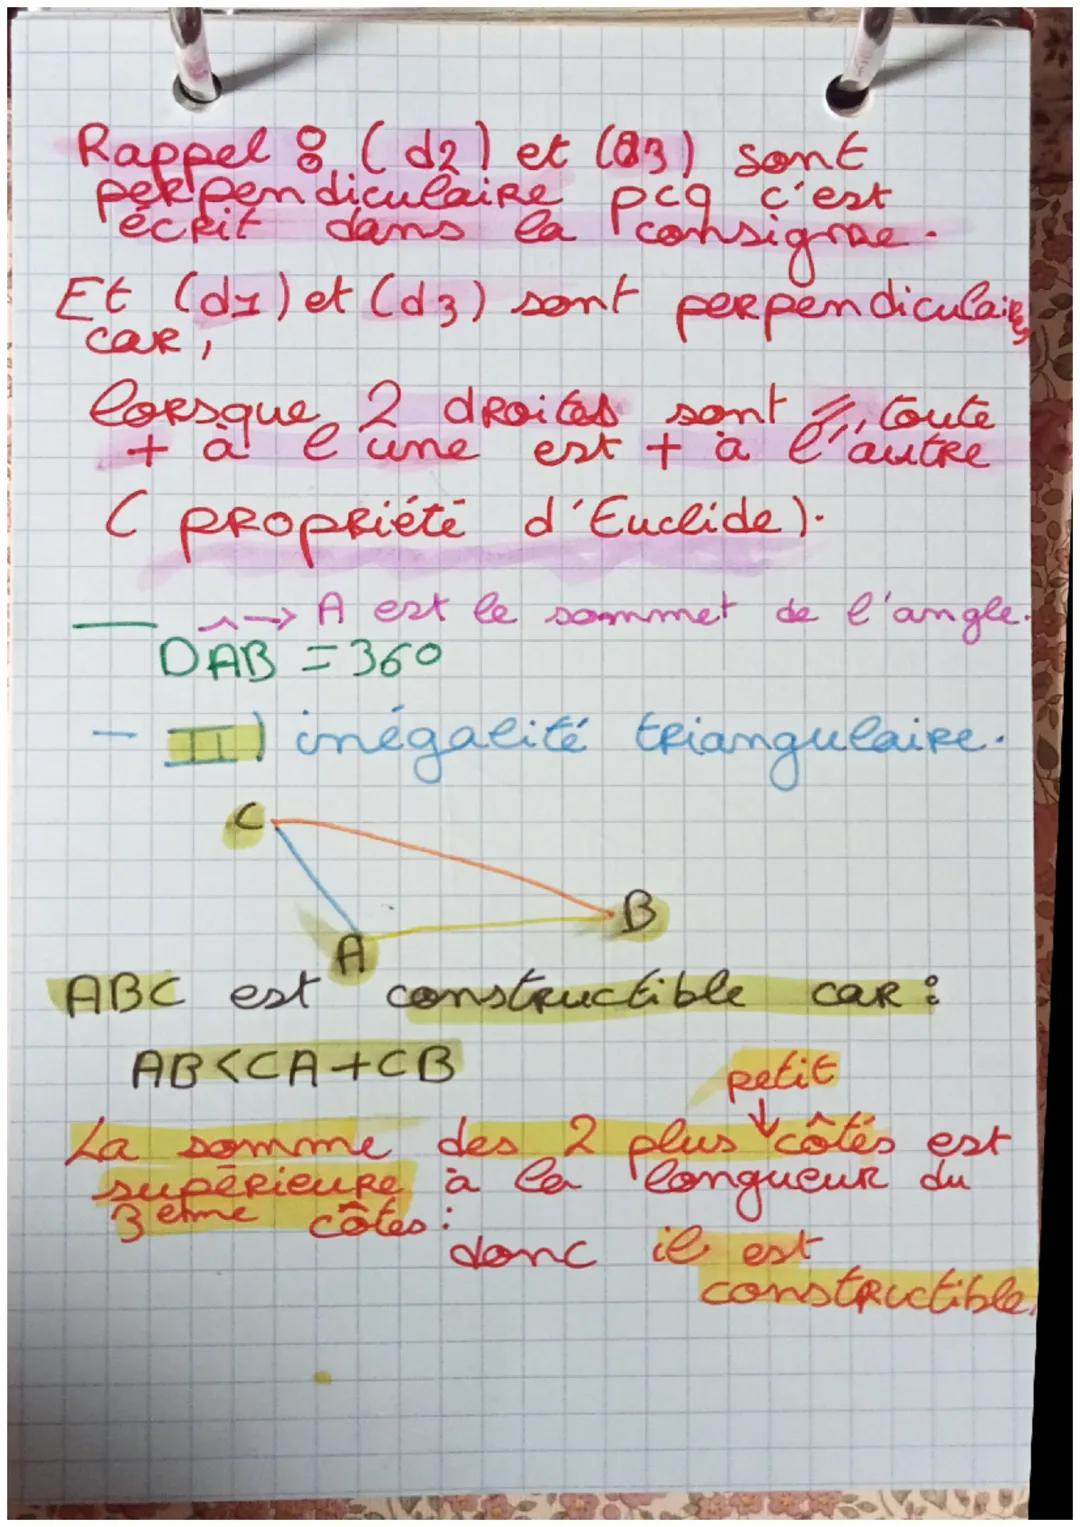 Rappel : (d2) et (d3) sont
perpendiculaire pcq c'est
écrit dans la consigne.
Et (d1) et (d3) sont perpendiculaires
car,
lorsque 2 droites sont //, toute
+ à l'une est + à l'autre
(propriété d'Euclide).
→ A est le sommet de l'angle.
DAB = 360
- II) inégalité triangulaire.
C
B
A
ABC est constructible car :
AB<CA+CB
petit
La somme des 2 plus ↓ côtés est
supérieure à la longueur du
3eme côtés :
donc il est
constructible.